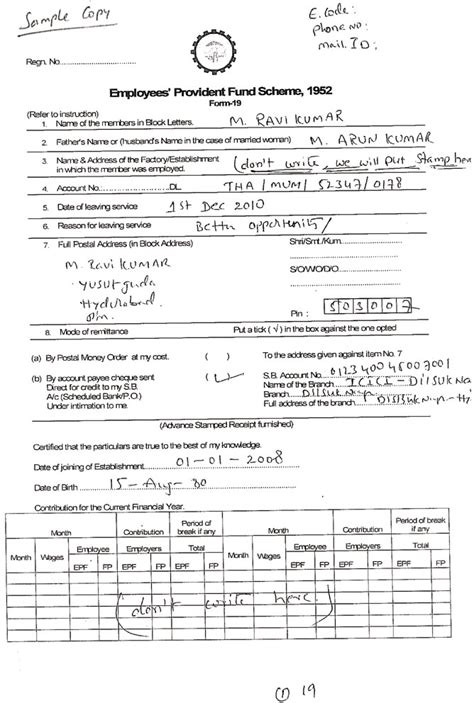 Sample Copy
E. Code:
Phone No:
Mail. ID:
Regn. No.
Employees' Provident Fund Scheme, 1952
Form-19
(Refer to instruction)
1. Name of the members in Block Letters. M. RAVI KUMAR
2. Father's Name or (husband's Name in the case of married woman) M. ARUN KUMAR
3. Name & Address of the Factory/Establishment in which the member was employed. (don't write, we will put Stamp here
4. Account No. DL. THA / MUM / 52347 / 0178
5. Date of leaving service 1st Dec 2010
6. Reason for leaving service Better opportunity
7. Full Postal Address (in Block Address) Shri/Smt./Kum.
M. Ravi KUMAR
S/O/W/O/D/O.
Yusufguda
Hyderabad
Pin : 503007
8. Mode of remittance Put a tick ( √ ) in the box against the one opted
(a) By Postal Money Order at my cost. ( ) To the address given against item No. 7
(b) By account payee cheque sent ( ✓ ) S.B. Account No. 012340045007001
Direct for credit to my S.B. Name of the Branch ICICI - DilSukNa
A/c (Scheduled Bank/P.O.) Branch DilSukNagar
Under intimation to me. Full address of the branch DilSukNagar - Hy
(Advance Stamped Receipt furnished)
Certified that the particulars are true to the best of my knowledge.
Date of joining of Establishment 01-01-2008
Date of Birth 15-Aug-80
Contribution for the Current Financial Year.
Month Contribution Period of break if any Month Contribution Period of break if any
Month Wages Employee Employers Total Month Wages Employee Employers Total
EPF FP EPF FP EPF FP EPF FP EPF FP EPF FP
(don't write here.)
(1) 19